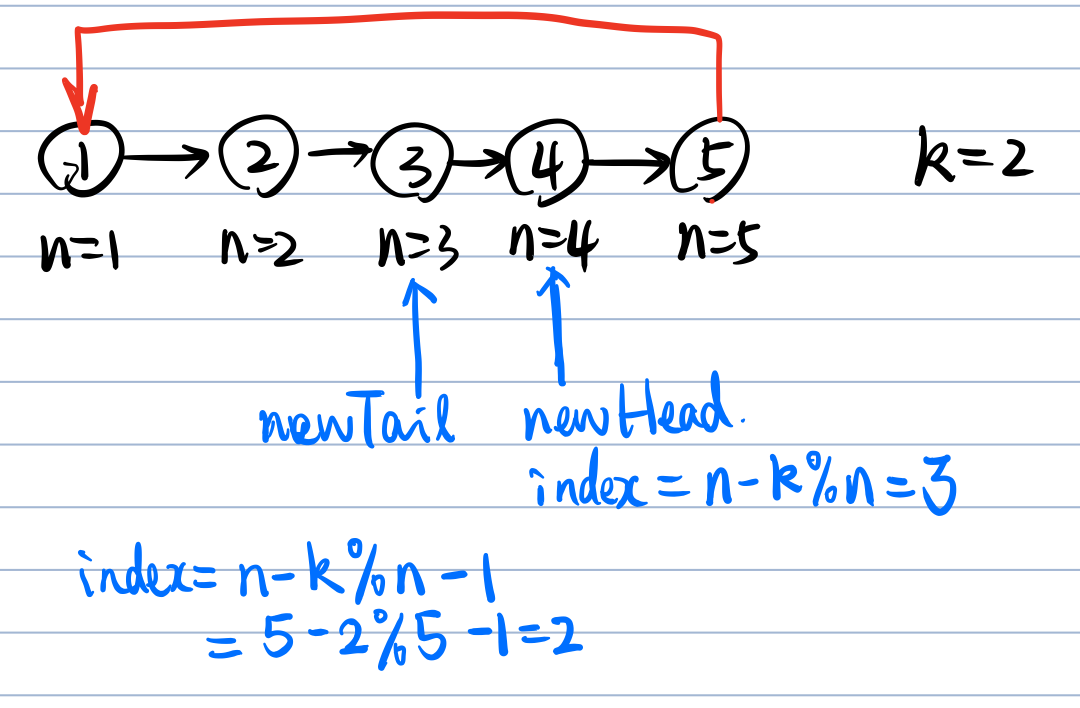 1 2 3 4 5 k=2
n=1 n=2 n=3 n=4 n=5
newTail newHead.
index = n-k%n=3
index= n-k%n-1
= 5-2%5-1=2